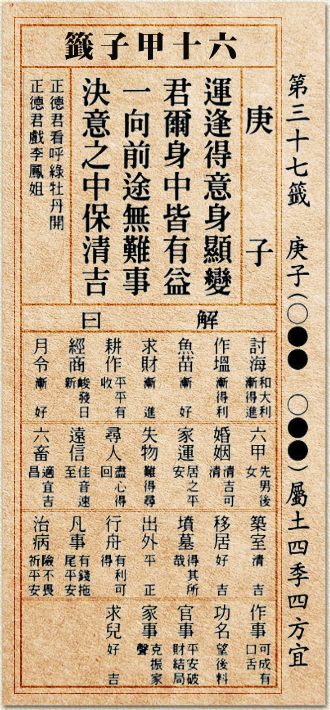 第三十七籤 庚子(○●● ○●●)屬土四季四方宜
六十甲子籤
庚子
運逢得意身顯變
君爾身中皆有益
一向前途無難事
決意之中保清吉
正德君看呼綠牡丹開
正德君戲李鳳姐
解曰
討海 和大利漸得進
作塭 漸得利
魚苗 漸好
求財 漸進
耕作 平平有收
經商 峻發日新
月令 漸好
六甲 先男後
婚姻 清吉可清
家運 居之平安
失物 難得尋
尋人 盡心得回
遠信 佳音速至
六畜 適宜吉昌
築室 清吉
移居 好吉
墳墓 得其所哉
出外 平正
行舟 有利可得
凡事 有錢拖尾平安
治病 險不畏祈平安
作事 可成有口舌
功名 望後料
官事 平安破財結局
家事 克振家聲
求兒 好吉